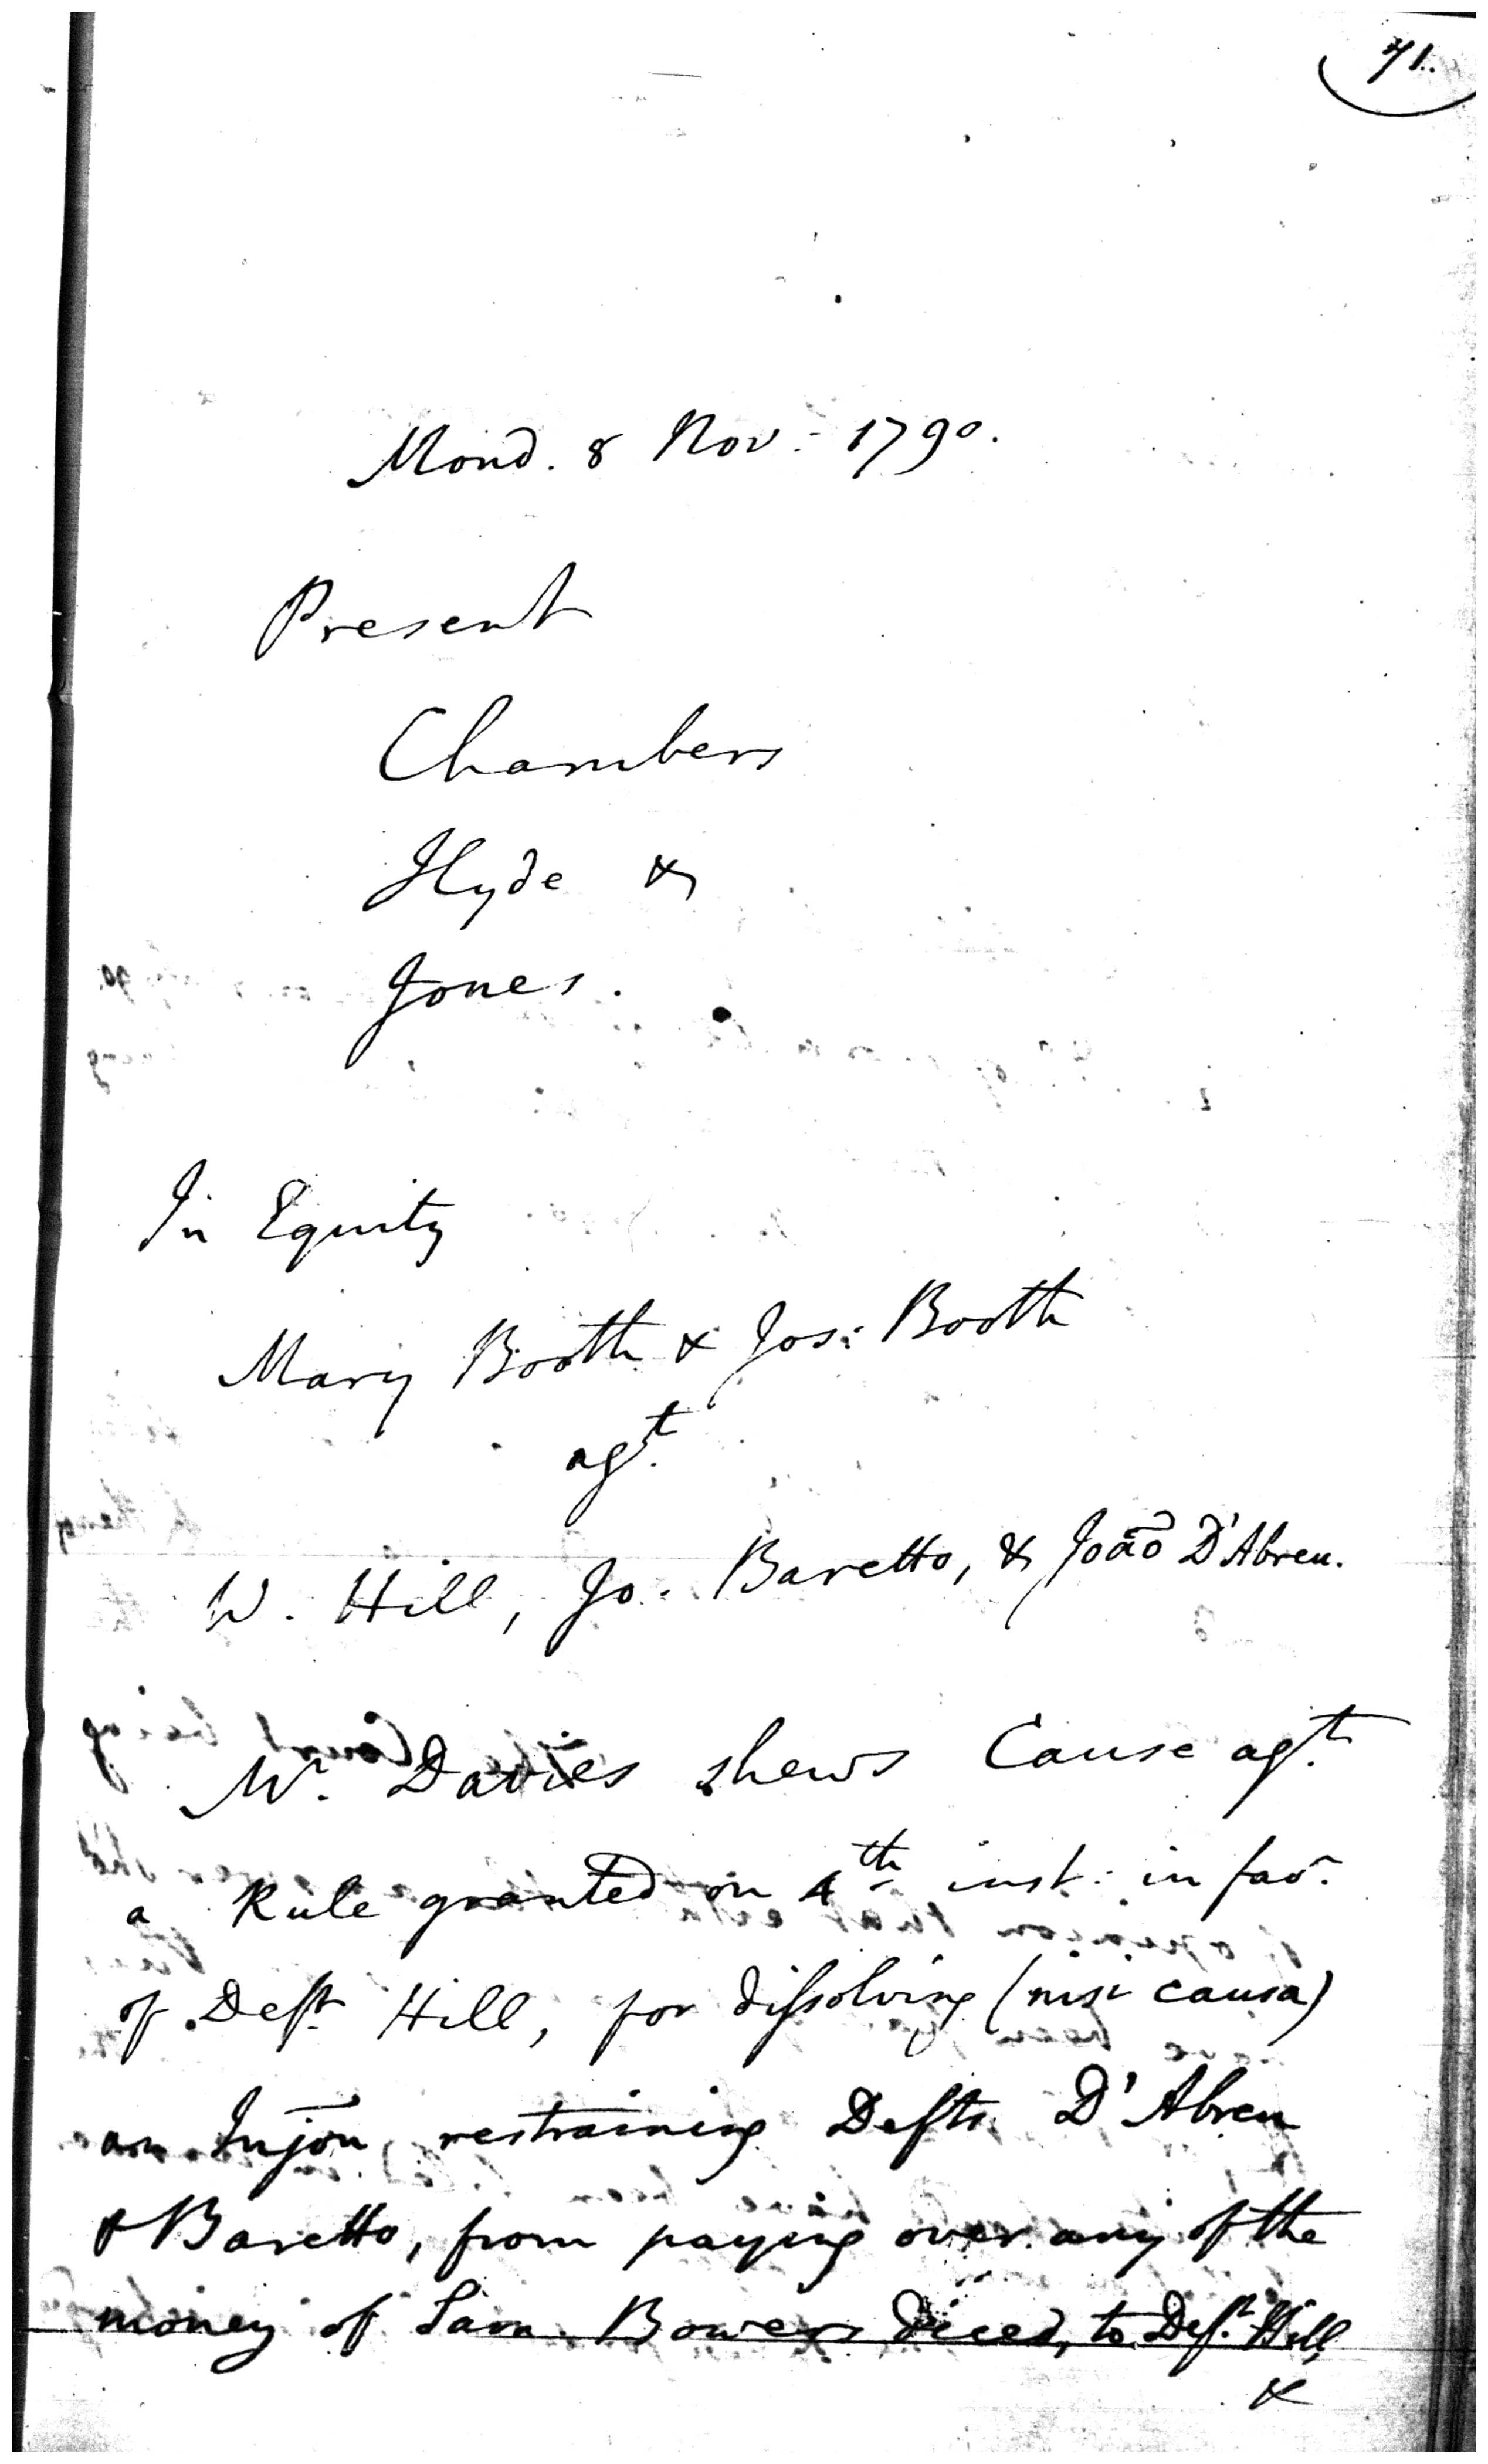 71.
Mond. 8 Nov. 1790.
Present
Chambers
Hyde &
Jones.
In Equity
Mary Booth & Jos: Booth
agt.
W. Hill, Jo. Baretto, & João D'Abreu.
Mr. Davies shews Cause agt.
a Rule granted on 4th inst: in favr.
of Deft. Hill, for dissolving (nisi causa)
an Injōn restraining Defts. D'Abreu
& Baretto, from paying over any of the
money of Sara Bowers deced, to Deft. Hill,
&